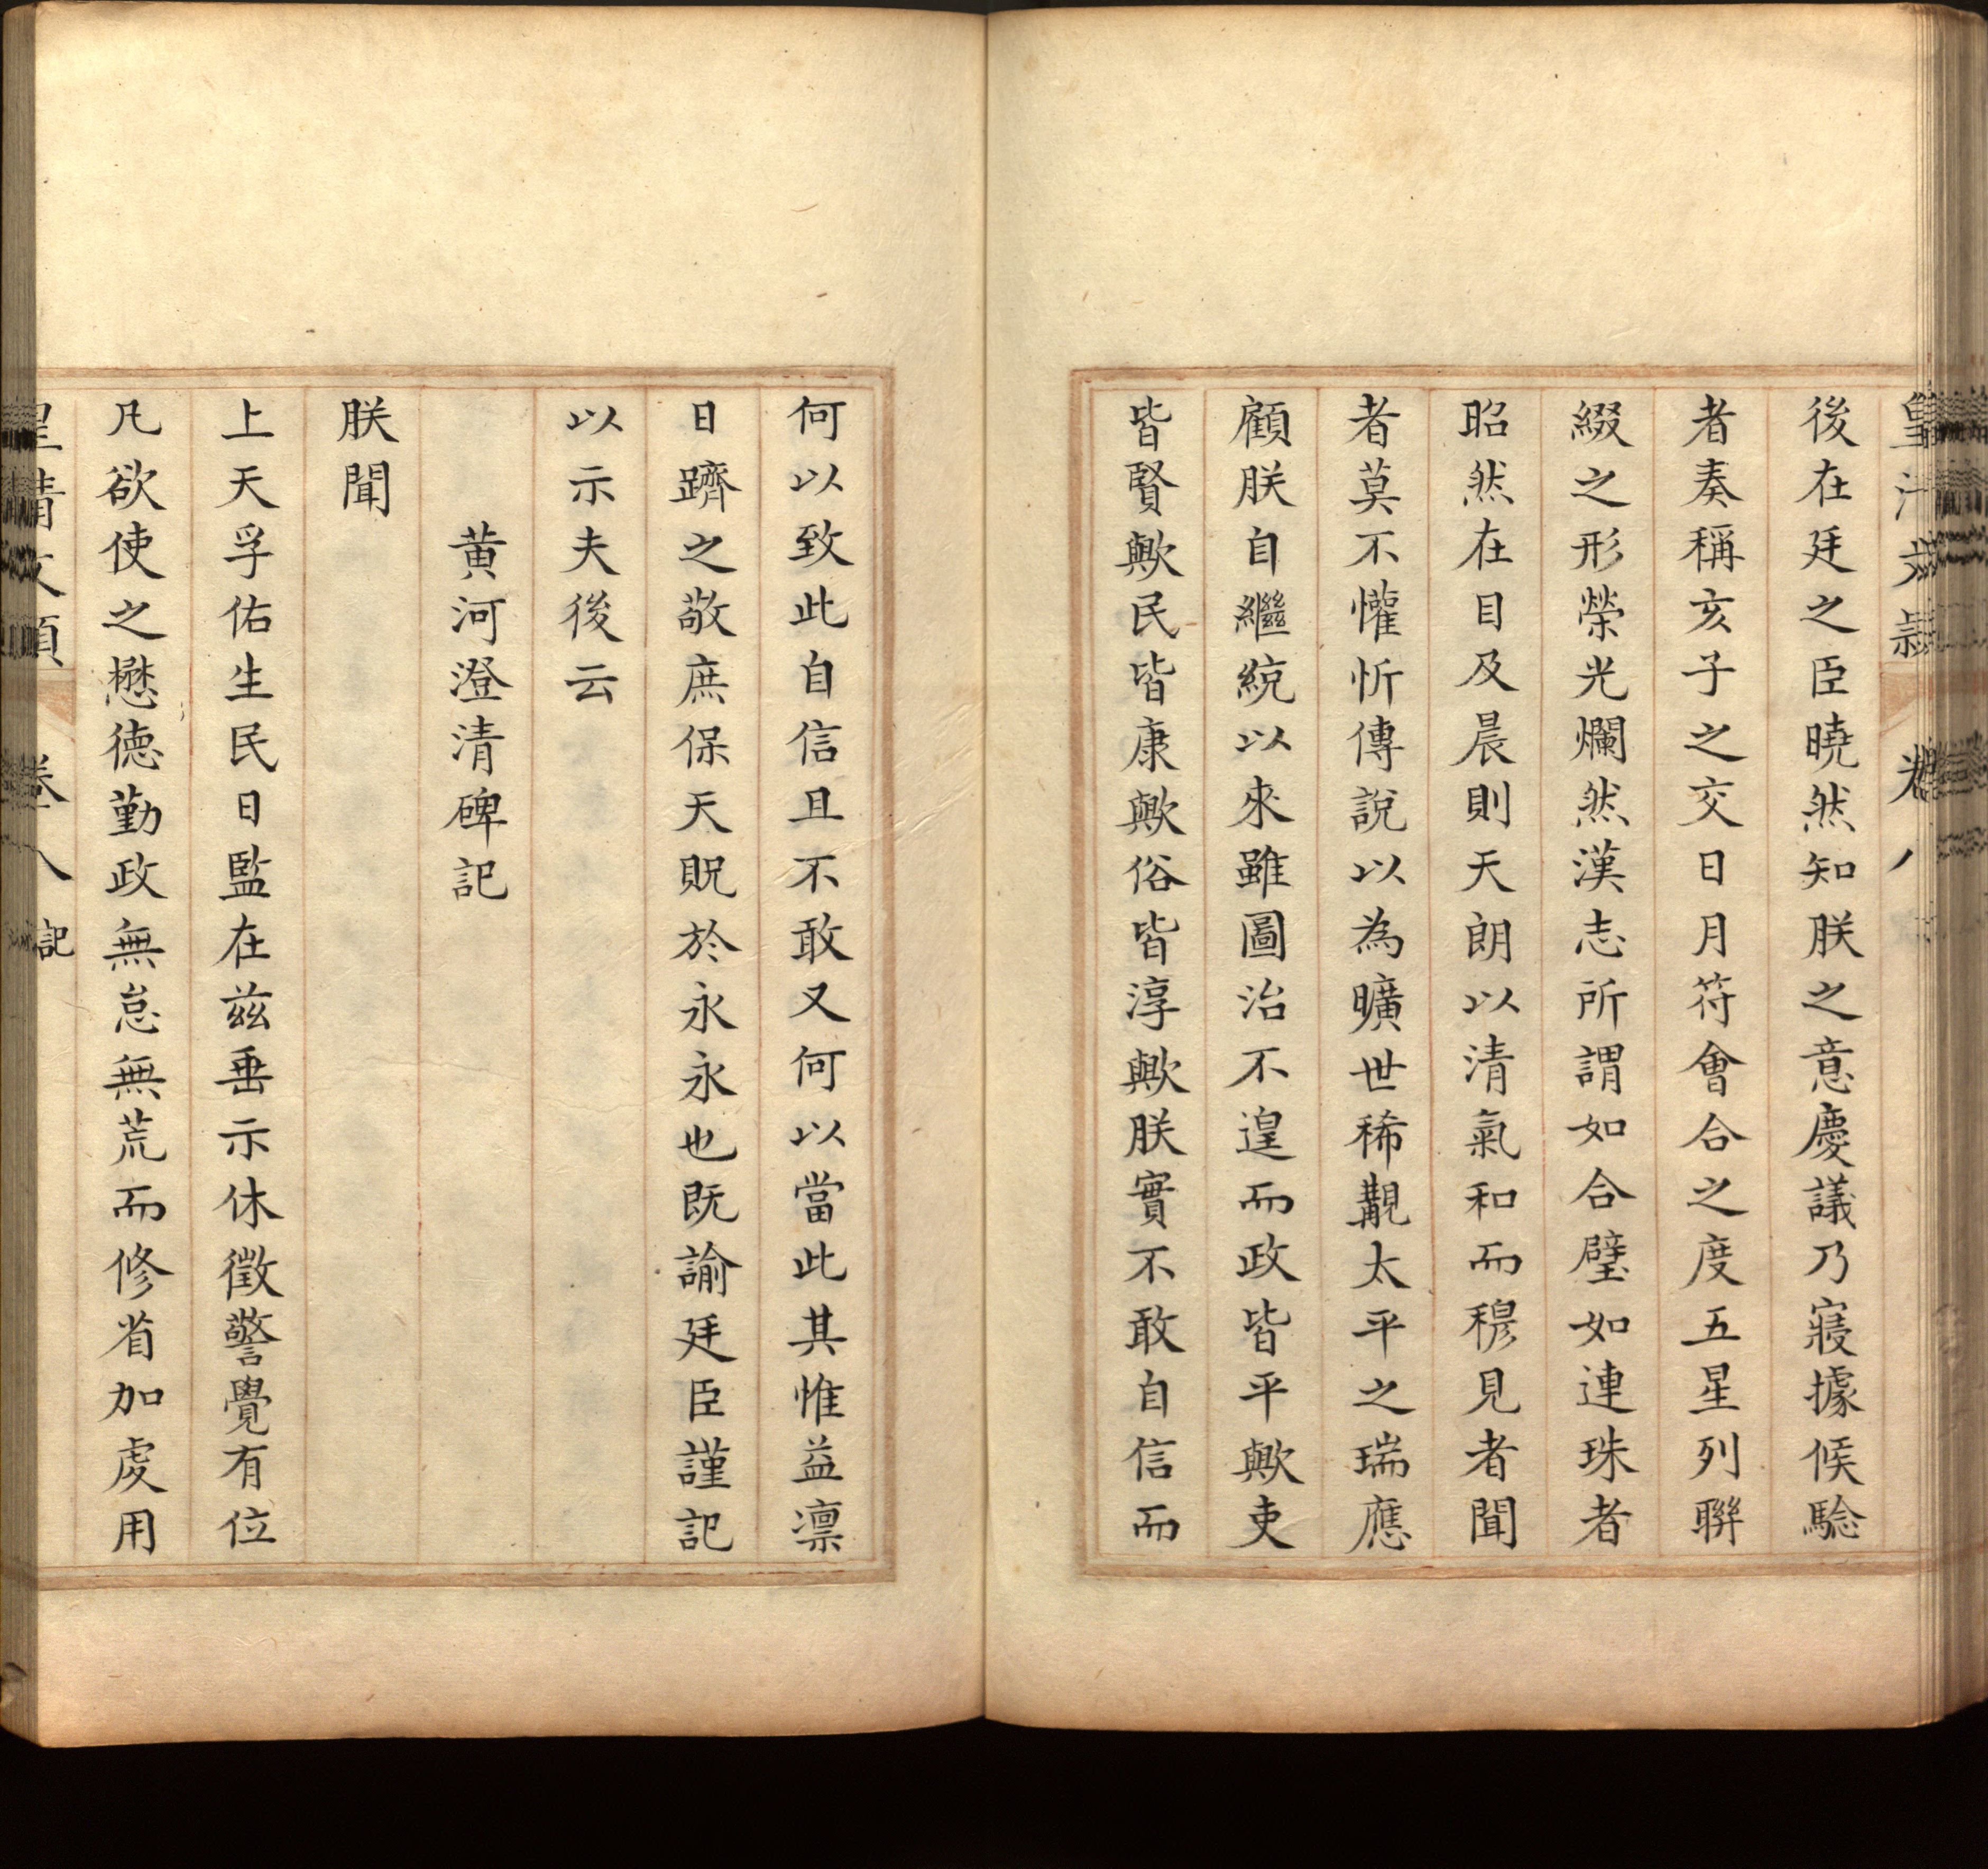 後在廷之臣曉然知朕之意慶議乃寢據候驗
者奏稱亥子之交日月符會合之度五星列聯
綴之形榮光爛然漢志所謂如合璧如連珠者
昭然在目及晨則天朗以清氣和而穆見者聞
者莫不懽忻傳說以為曠世稀覯太平之瑞應
顧朕自繼統以來雖圖治不遑而政皆平歟吏
皆賢歟民皆康歟俗皆淳歟朕實不敢自信而
何以致此自信且不敢又何以當此其惟益凛
日躋之敬庶保天貺於永永也既諭廷臣謹記
以示夫後云
黄河澄清碑記
朕聞
上天孚佑生民日監在兹垂示休徵警覺有位
凡欲使之懋德勤政無怠無荒而修省加虔用
皇清文穎 卷八 記